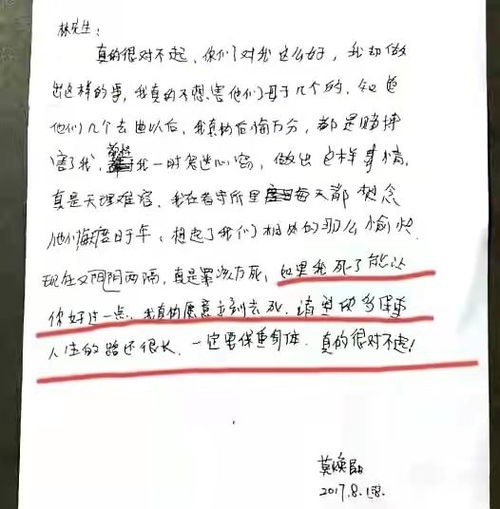 林先生：
真的很对不起，你们对我这么好，我却做
出这样的事，我真的不想害他们母子几个的，知道
他们几个去世以后，我真的后悔万分，都是赌博
害了我，我一时鬼迷心窍，做出这样事情，
真是天理难容，我在看守所里每天都想念
他们，每度日于年，想起了我们相处的那么愉快，
现在又阴阴两隔，真是罪该万死，如果我死了能让
你好过一点，我真的愿意立刻去死，请节哀多保重
人生的路还很长，一定要保重身体，真的很对不起！
莫焕晶
2017.8.